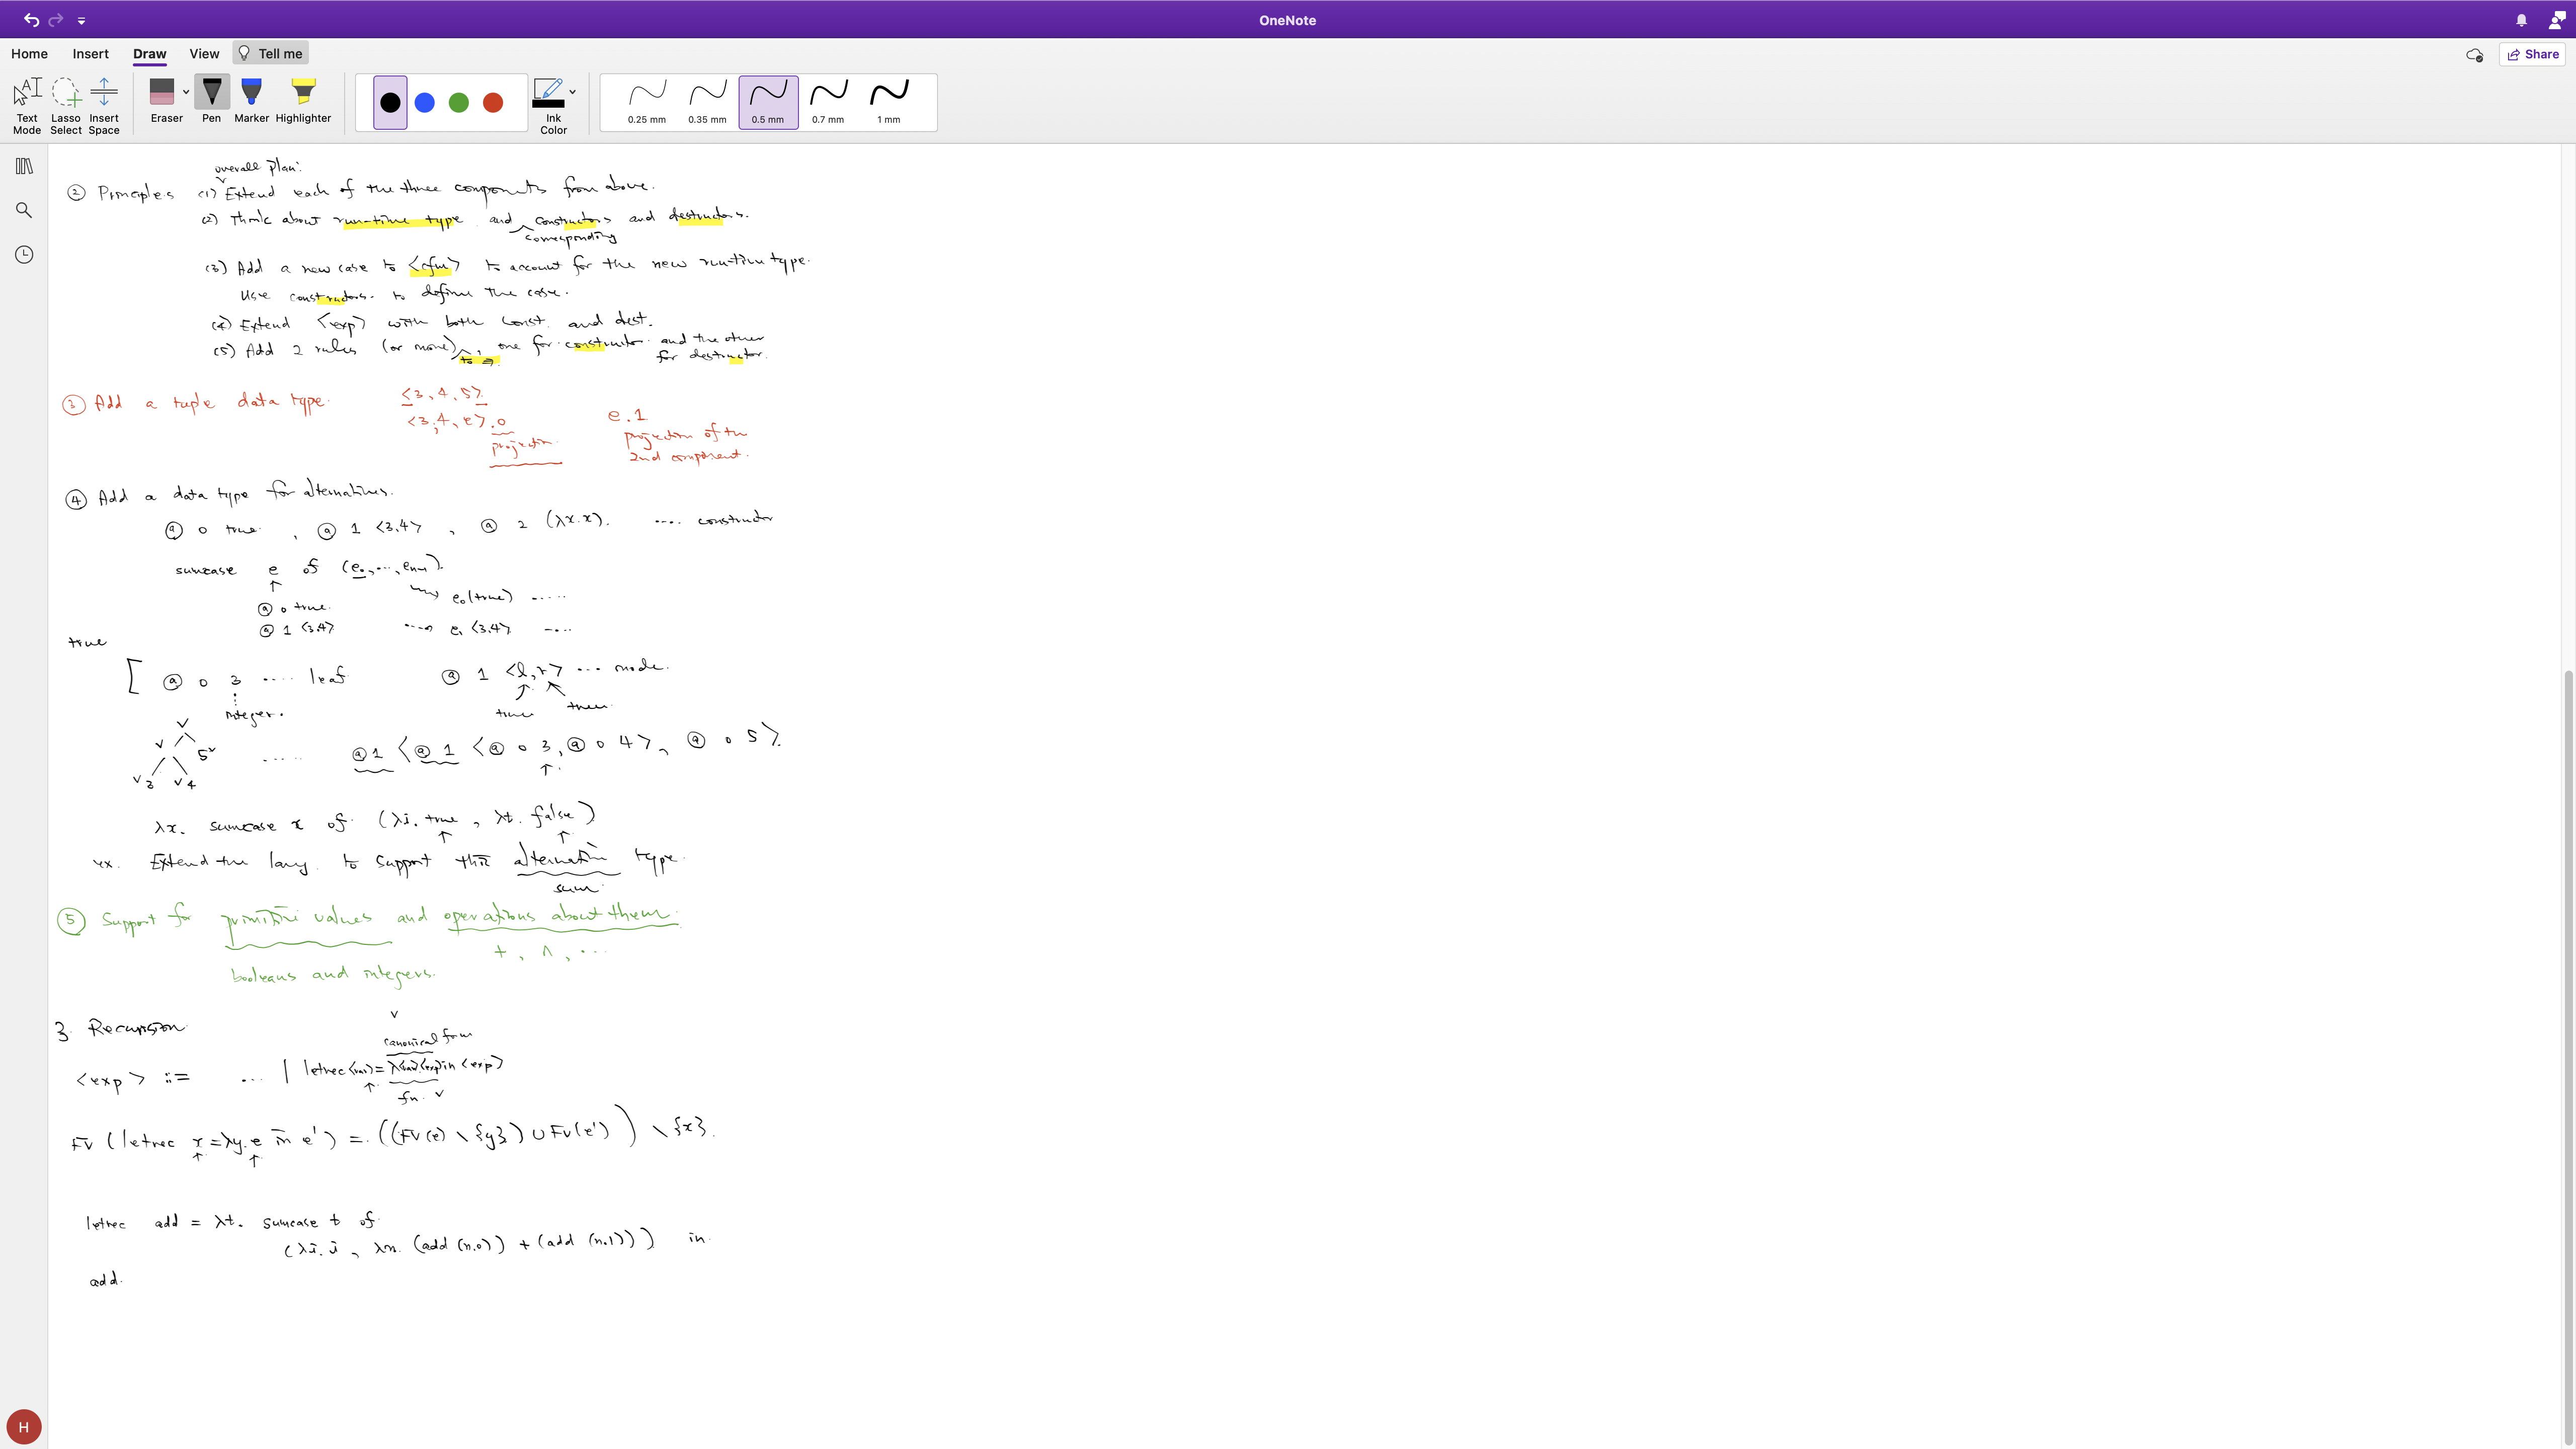 OneNote
Home Insert Draw View Tell me
Share
Text Mode
Lasso Select
Insert Space
Eraser
Pen
Marker
Highlighter
Ink Color
0.25 mm
0.35 mm
0.5 mm
0.7 mm
1 mm
overall plan:
② Principles (1) Extend each of the three components from above.
(2) Think about run-time type and constructors and destructors.
corresponding
(3) Add a new case to <cfm> to account for the new run-time type.
Use constructors to define the case.
(4) Extend <exp> with both const. and dest.
(5) Add 2 rules (or more), one for constructor and the other
to ⇒
for destructor.
③ Add a tuple data type. <3, 4, 5>
<3, 4, e>.0 e.1
projection
projection of the
2nd component.
④ Add a data type for alternatives.
@ 0 true , @ 1 <3,4> , @ 2 (λx.x). .... constructor
sumcase e of (e₀, ..., eₙ₋₁).
↑
@ 0 true. e₀(true) .....
@ 1 <3,4> e₁ <3,4> ....
true
[ @ 0 3 .... leaf @ 1 <l,r> ... node.
integer. tree tree
5
3 4
...... @1 <@ 1 <@ 0 3, @ 0 4>, @ 0 5>
↑
λx. sumcase x of (λi. true , λt. false)
↑ ↑
ex. Extend the lang. to support this alternative type.
sum
⑤ Support for primitive values and operations about them.
+ , ∧ , ...
booleans and integers.
3. Recursion
canonical form
<exp> ::= ... | letrec <var> = λ<var>.<exp> in <exp>
↑
fn.
FV (letrec x = λy. e in e') = ((FV(e) \ {y}) ∪ FV(e')) \ {x}.
↑ ↑
letrec add = λt. sumcase t of
(λi. i , λn. (add (n.0)) + (add (n.1))) in
add.
H